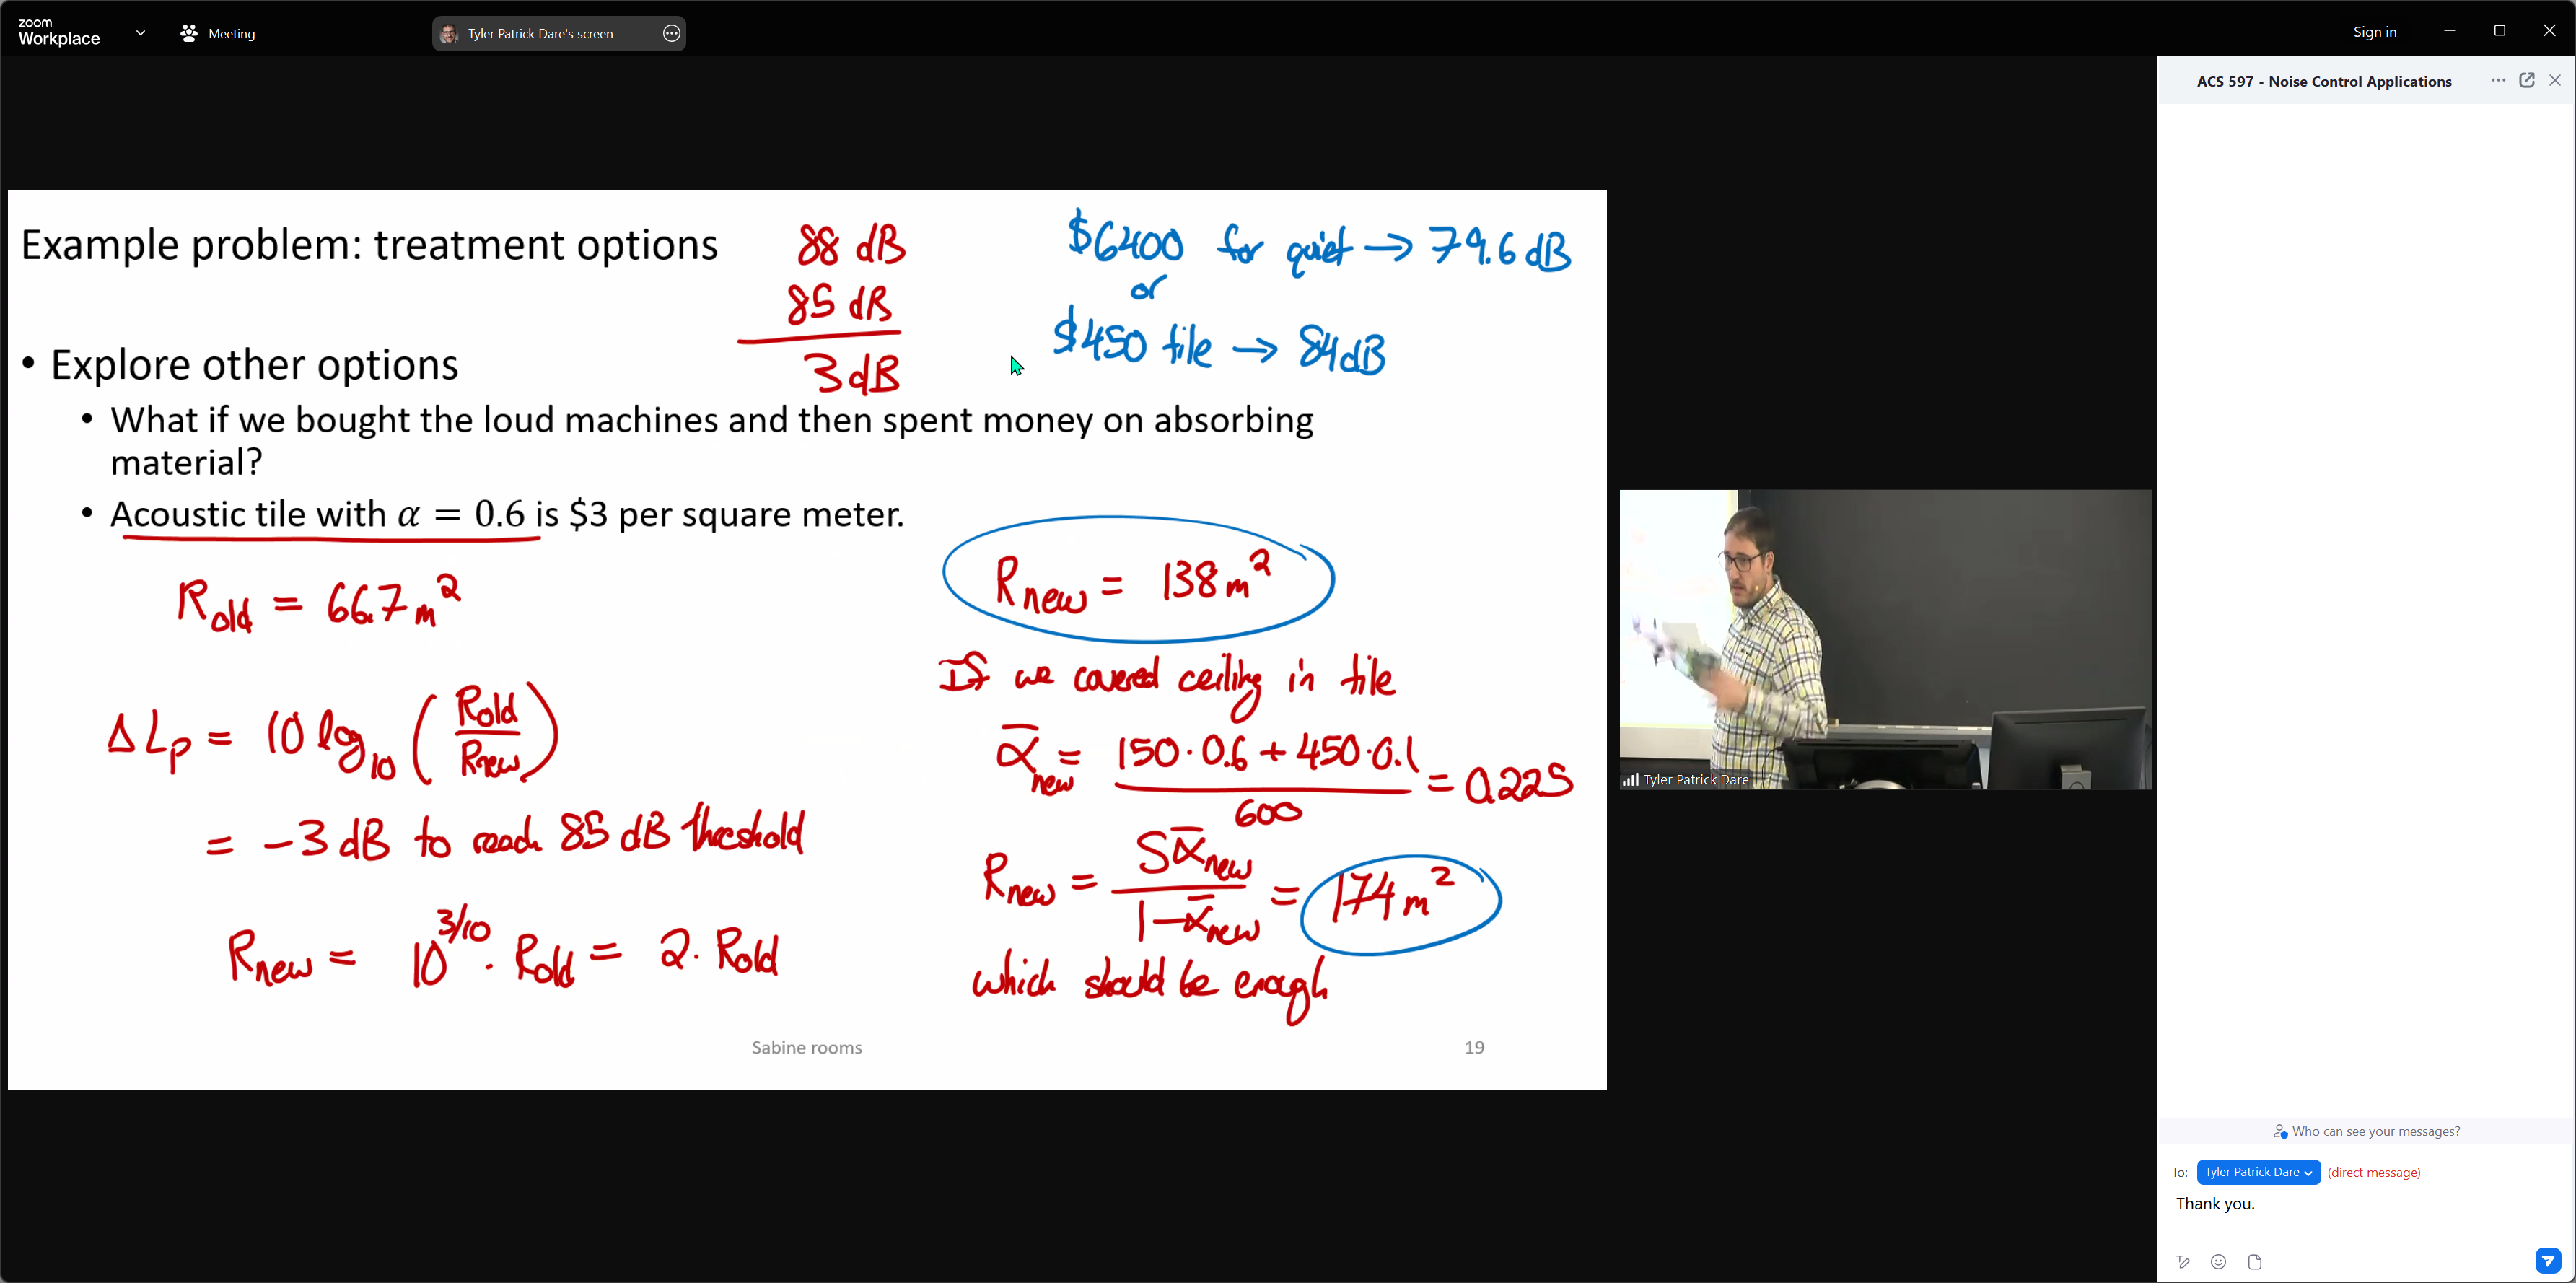 zoom
Workplace
Meeting
Tyler Patrick Dare's screen
Sign in
ACS 597 - Noise Control Applications
Example problem: treatment options
88 dB
85 dB
3 dB
$6400 for quiet → 79.6 dB
or
$450 tile → 84 dB
• Explore other options
• What if we bought the loud machines and then spent money on absorbing
material?
• Acoustic tile with α = 0.6 is $3 per square meter.
R_old = 66.7 m²
ΔL_p = 10 log₁₀ (R_old / R_new)
= −3 dB to reach 85 dB threshold
R_new = 10^(3/10) · R_old = 2 · R_old
R_new = 138 m²
If we covered ceiling in tile
ᾱ_new = (150 · 0.6 + 450 · 0.1) / 600 = 0.225
R_new = Sᾱ_new / (1 − ᾱ_new) = 174 m²
which should be enough
Sabine rooms
19
Tyler Patrick Dare
Who can see your messages?
To: Tyler Patrick Dare (direct message)
Thank you.